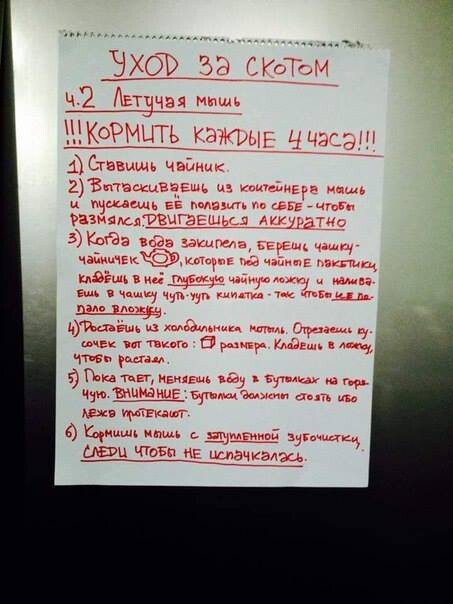 УХОД ЗА СКОТОМ
ч.2 Летучая мышь
!!!КОРМИТЬ КАЖДЫЕ 4 часа!!!
1) Ставишь чайник.
2) Вытаскиваешь из контейнера мышь
и пускаешь ЕЁ полазить по СЕБЕ - чтобы
размялся. ДВИГАЕШЬСЯ АККУРАТНО
3) Когда вода закипела, БЕРЕШЬ чашку-
чайничек , которые под чайные пакетики,
кладёшь в неё глубокую чайную ложку и налива-
ешь в чашку чуть-чуть кипятка - так чтобы НЕ по-
пало вложку.
4) Достаёшь из холодильника мотыль. Отрезаешь ку-
сочек вот такого : размера. Кладёшь в ложку,
чтобы растаял.
5) Пока тает, меняешь воду в бутылках на горя-
чую. ВНИМАНИЕ: бутылки должны стоять ибо
лёжа протекают.
6) Кормишь мышь с затупленной зубочистки,
СЛЕДИ ЧТОБЫ НЕ ИСПАЧКАЛАСЬ.